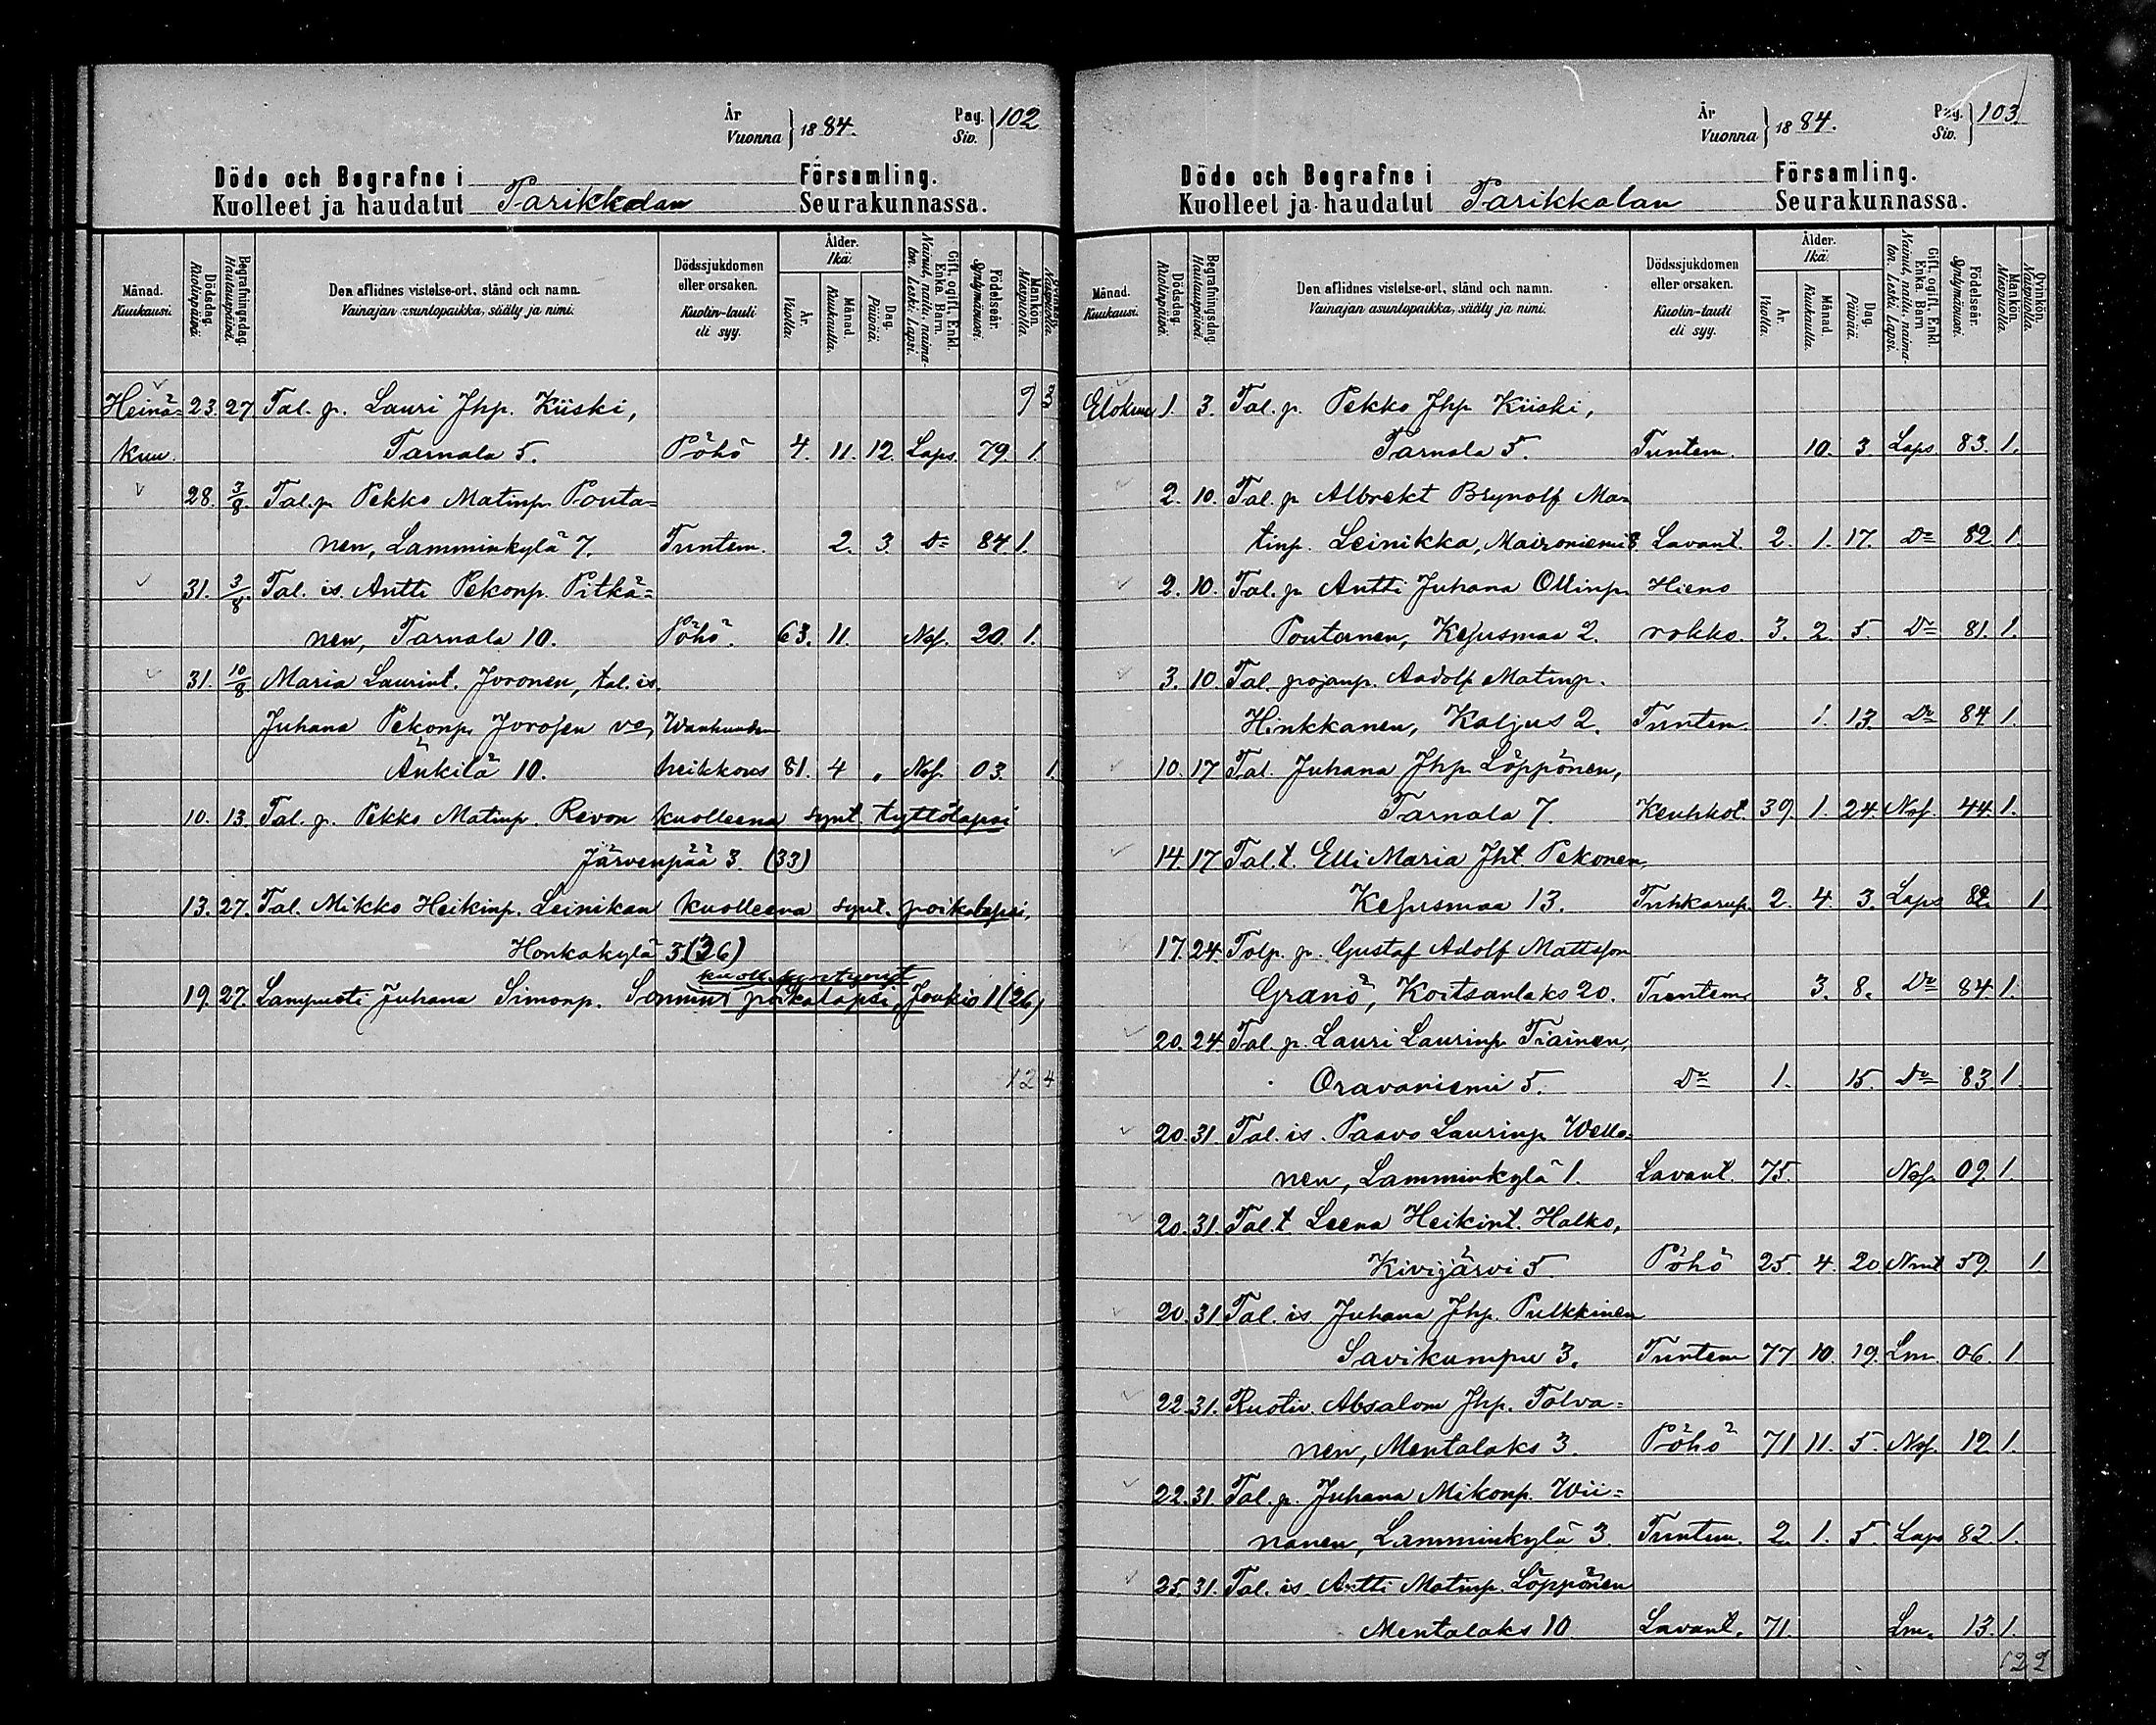 År
Vuonna } 1884.
Pag.
Siv. } 102
Döde och Begrafne i Församling.
Kuolleet ja haudatut Parikkalan Seurakunnassa.
Månad. Kuukausi.
Dödsdag. Kuolinpäivä.
Begrafningsdag. Hautauspäivä.
Den aflidnes vistelse-ort, stånd och namn.
Vainajan asuntopaikka, sääty ja nimi.
Dödssjukdomen eller orsaken.
Kuolin-tauti eli syy.
Ålder. Ikä.
År. Vuotta.
Månad. Kuukautta.
Dag. Päivää.
Gift, ogift, Enkl. Enka, Barn.
Nainut, naitu, naimaton. Leski. Lapsi.
Födelseår. Syntymävuosi.
Mankön. Miespuolia.
Qvinkön. Naispuolia.
Heinä= 23. 27 Tal. p. Lauri Jhp. Kiiski, 9 3
kuu. Tarnala 5. Pöhö 4. 11. 12. Laps. 79. 1.
28. 3/8. Tal. p. Pekko Matinp. Pouta=
nen, Lamminkylä 7. Tuntem. 2. 3. Do 84 1.
31. 3/8. Tal. is. Antti Pekonp. Pitkä=
nen, Tarnala 10. Pöhö. 63. 11. Naf. 20. 1.
31. 10/8. Maria Laurint. Joronen, tal. is.
Juhana Pekonp. Jorosen vo, Wanhuuden
Änkilä 10. heikkous 81. 4 „ Naf. 03. 1.
10. 13. Tal. p. Pekko Matinp. Revon kuolleena synt tyttölapsi
Järvenpää 3. (33)
13. 27. Tal. Mikko Heikinp. Leinikan kuolleena synt. poikalapsi,
Honkakylä 3 (36)
19. 27. Lampuoti Juhana Simonp. poikalapsi, Joukio 1 (26)
12 4
År
Vuonna } 1884.
Pag.
Siv. } 103
Döde och Begrafne i Församling.
Kuolleet ja haudatut Parikkalan Seurakunnassa.
Månad. Kuukausi.
Dödsdag. Kuolinpäivä.
Begrafningsdag. Hautauspäivä.
Den aflidnes vistelse-ort, stånd och namn.
Vainajan asuntopaikka, sääty ja nimi.
Dödssjukdomen eller orsaken.
Kuolin-tauti eli syy.
Ålder. Ikä.
År. Vuotta.
Månad. Kuukautta.
Dag. Päivää.
Gift, ogift, Enkl. Enka, Barn
Nainut, naitu, naimaton. Leski. Lapsi.
Födelseår. Syntymävuosi.
Mankön. Miespuolia.
Qvinkön. Naispuolia.
Elokuu 1. 3. Tal. p. Pekko Jhp Kiiski,
Tarnala 5. Tuntem. 10. 3 Laps 83. 1.
2. 10. Tal. p Albrekt Brynolf Ma=
tinp. Leinikka, Maironiemi 8. Lavant. 2. 1. 17. Do 82. 1.
2. 10. Tal. p Antti Juhana Ollinp. Hieno
Poutanen, Kesusmaa 2. rokko. 3. 2. 5. Do 81. 1.
3. 10. Tal. pojanp. Aadolf Matinp.
Hinkkanen, Kaljus 2. Tuntem. 1. 13. Do 84 1.
10. 17 Tal. Juhana Jhp Löppönen,
Tarnala 7. Keuhkot. 39. 1. 24. Naf. 44. 1.
14. 17 Tal. t. Elli Maria Jht Pekonen,
Kesusmaa 13. Tuhkarup. 2. 4. 3. Laps 82. 1.
17. 24. Tolp. p. Gustaf Adolf Mattsson
Granö, Koitsanlaks 20. Tuntem. 3. 8. Do 84 1.
20. 24. Tal. p. Lauri Laurinp. Tiainen,
Oravaniemi 5. Do 1. 15. Do 83. 1.
20. 31. Tal. is. Paavo Laurinp. Wello=
nen, Lamminkylä 1. Lavant. 75. Naf. 09. 1.
20. 31. Tal. t Leena Heikint. Halko,
Kivijärvi 5. Pöhö 25. 4. 20. Nmt 59. 1.
20. 31 Tal. is. Juhana Jhp. Pulkkinen
Savikumpu 3. Tuntem 77 10. 19. Lm. 06. 1
22. 31. Ruotiv. Absalom Jhp. Tolva=
nen, Mentalaks 3. Pöhö 71 11. 5. Naf. 12. 1.
22. 31. Tal. p. Juhana Mikonp. Wii=
nanen, Lamminkylä 3. Tuntem. 2. 1. 5. Laps 82. 1.
25. 31. Tal. is. Antti Matinp. Löppönen
Mentalaks 10 Lavant. 71. Lm. 13. 1.
12 2